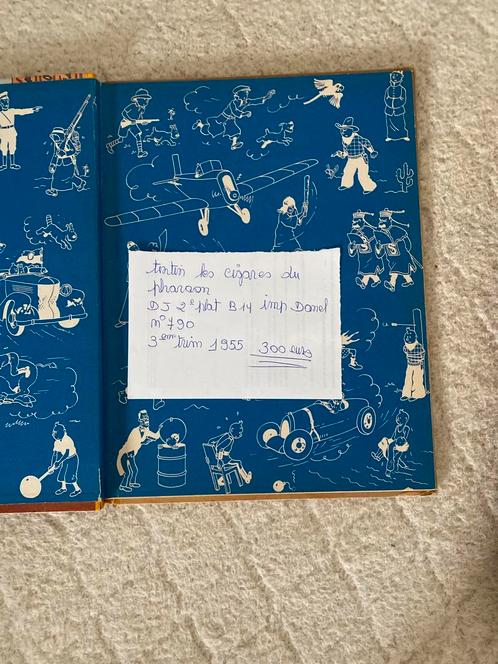 tintin les cigares du
pharaon
DJ 2e plat B14 imp Danel
n° 790
3em trim 1955 300 euro